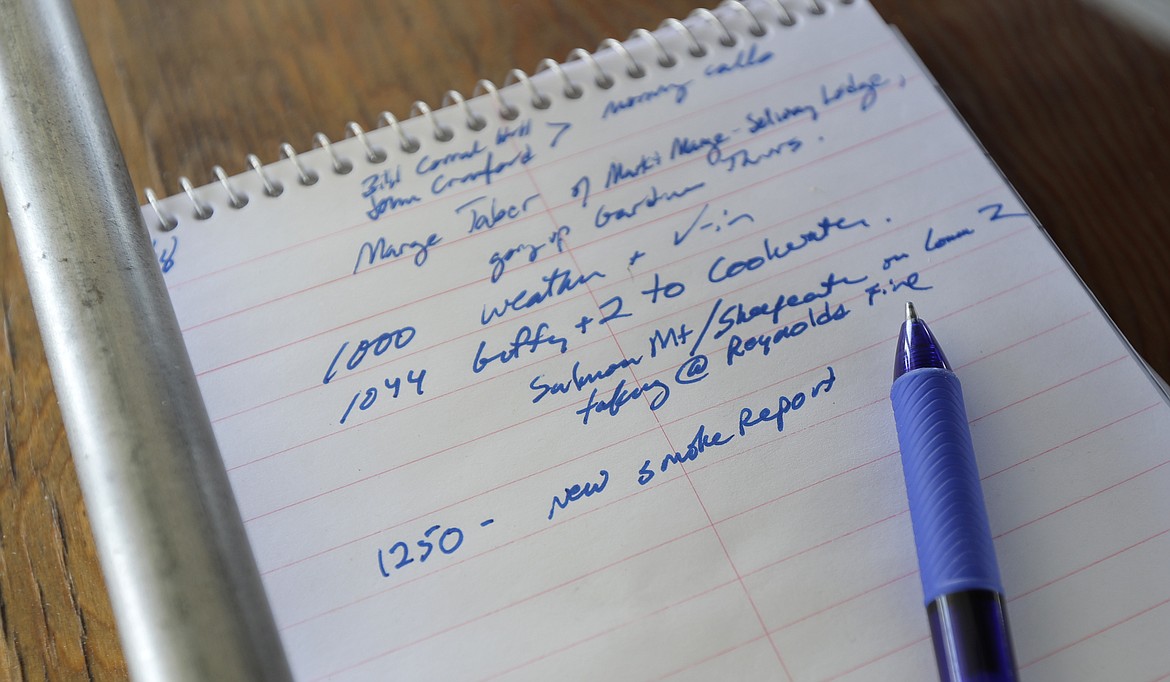 Bill Corral Hill > morning calls
John Crawford
Marge Taber of Mark & Marge - Selway Lodge,
going up Gardner Thurs.
1000 weather + ✓-in
1044 Guffy + 2 to Coolwater.
Salmon Mt / Sheepeater on Lown 2
talking @ Reynolds Fire
1250 - New Smoke Report